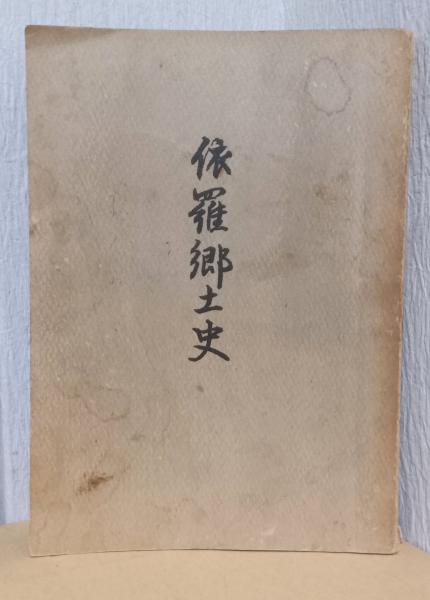 依羅郷土史